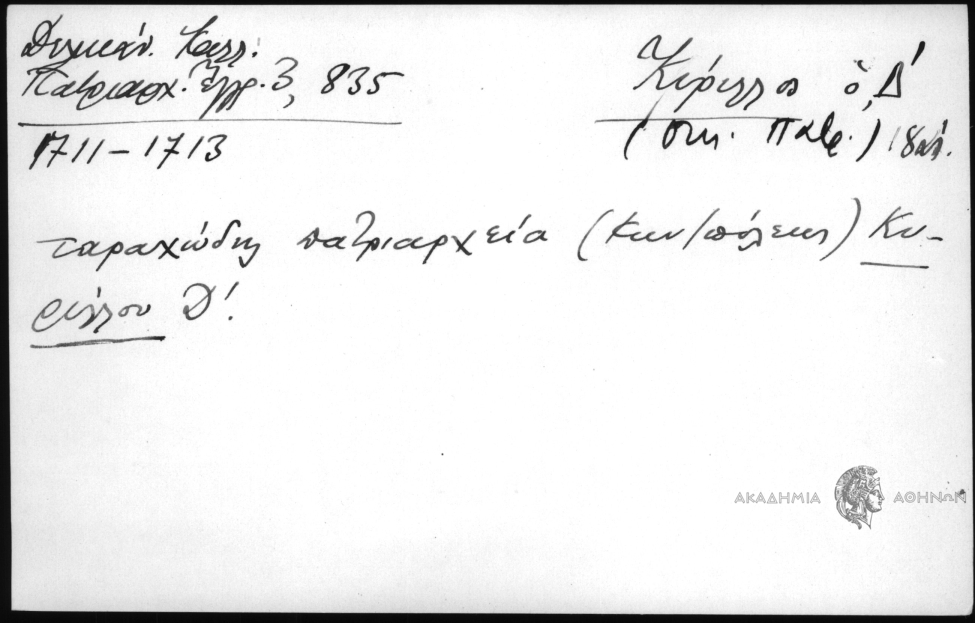 Δελικάν. Καλλ.
Πατριαρχ. Ἔγγρ. 3, 835
1711 – 1713
Κύριλλος ὁ Δ΄
(Οἰκ. Πατρ.) 18 αἰ.
ταραχώδης πατριαρχεία (Κων/πόλεως) Κυ-
ρίλλου Δ΄.
ΑΚΑΔΗΜΙΑ ΑΘΗΝΩΝ